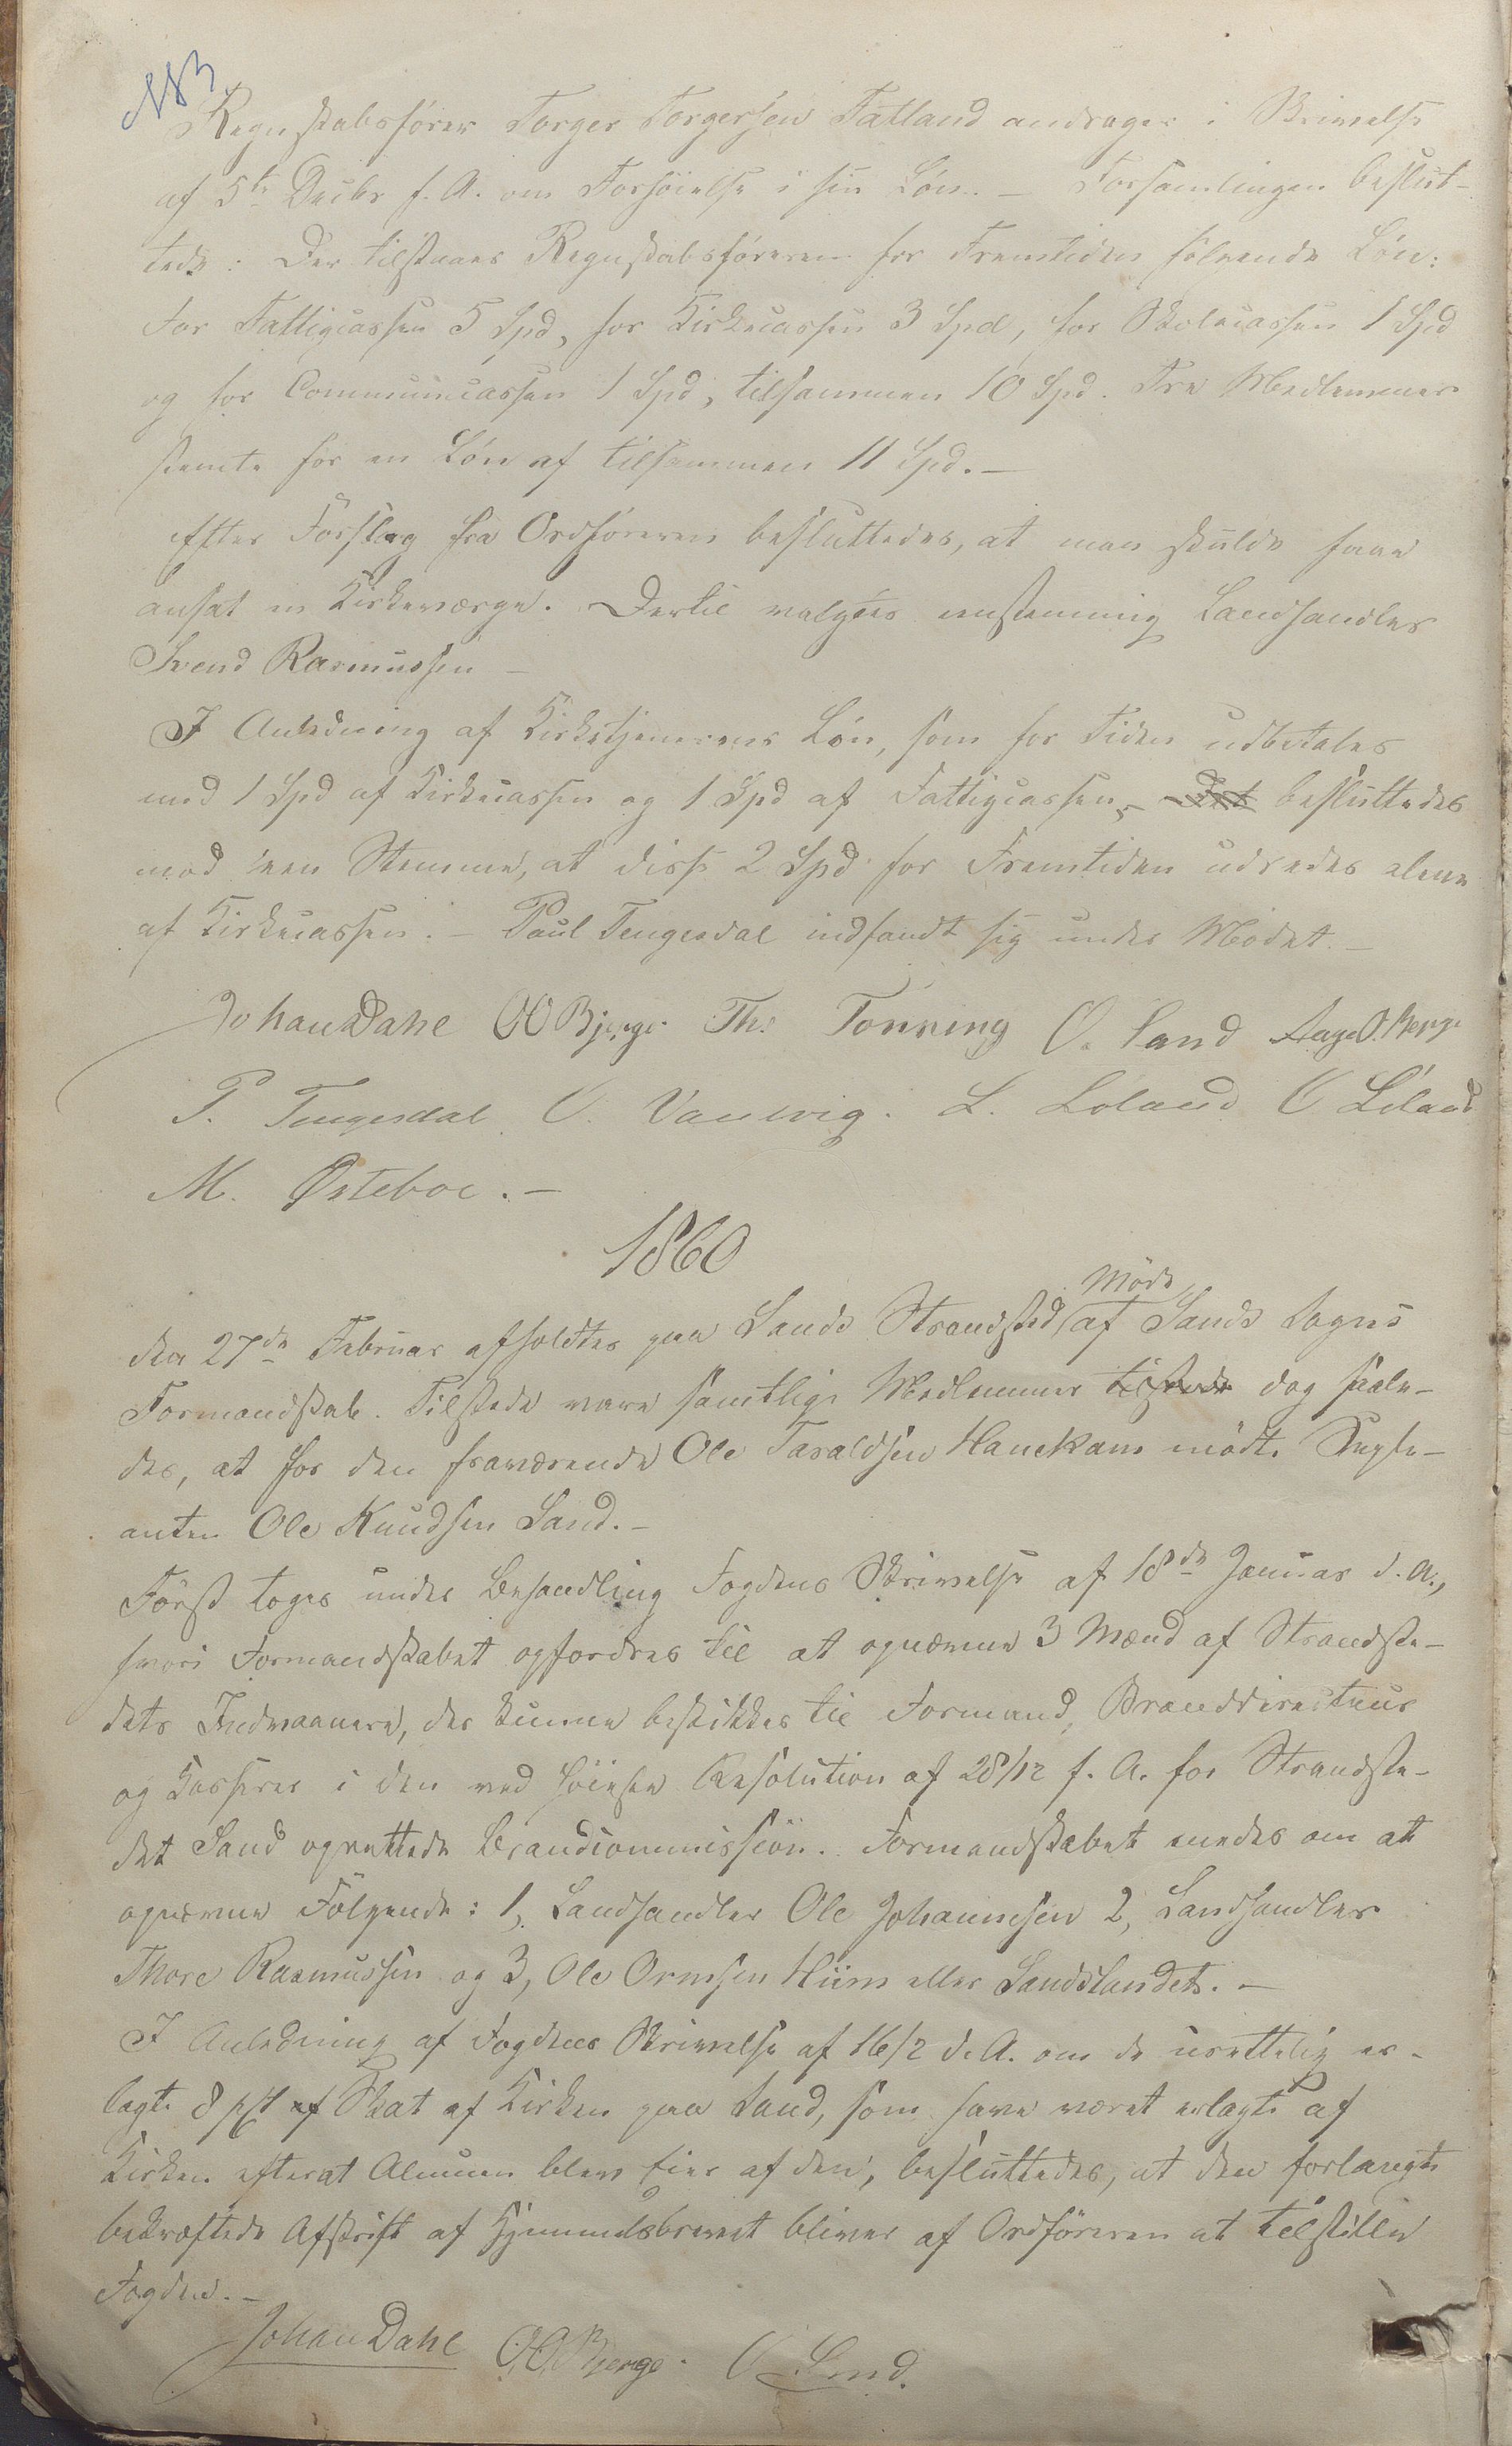 NB
Regnskabsfører Torger Torgersen Tatland andrager i Skrivelse
af 5te Decbr f. A. om Forhöielse i sin Lön. – Forsamlingen beslut-
tede: Der tilstaaes Regnskabsföreren for Fremtiden fölgende Lön:
For Fattigcassen 5 Spd, for Kirkecassen 3 Spd, for Skolecassen 1 Spd
og for Communecassen 1 Spd, tilsammen 10 Spd. Tre Medlemmer
stemte for en Lön af tilsammen 11 Spd. –
Efter Forslag fra Ordföreren besluttedes, at man skulde faae
ansat en Kirkeværge. Dertil valgtes enstemmig Landhandler
Svend Rasmussen –
I Anledning af Kirketjenerens Lön, som for Tiden udbetales
med 1 Spd af Kirkecassen og 1 Spd af Fattigcassen, – Det besluttedes
mod een Stemme, at disse 2 Spd for Fremtiden udredes alene
af Kirkecassen. – Paul Tengesdal indfandt sig under Mödet. –
Johan Dahl OO Bjerge. Th. Tonning O. Sand Aage O. Berge
P. Tengesdal O. Vanvig. L. Löland O Löland
M. Østeboe. –
1860
Möde
den 27de Februar afholdtes paa Sands Strandsted af Sands Sogns
Formandskab. Tilstede vare samtlige Medlemmer tilstede dog saale-
des, at for den fraværende Ole Taraldsen Hauekam mödte Supple-
anten Ole Knudsen Sand. –
Först toges under Behandling Fogdens Skrivelse af 18de Januar d. A.,
hvori Formandskabet opfordres til at opnævne 3 Mænd af Strandste-
dets Indvaanere, der kunne beskikkes til Formand, Branddirecteur
og Casserer i den ved höieste Resolution af 28/12 f. A. for Strandste-
det Sand oprettede Brandcommission. Formandskabet enedes om at
opnævne Fölgende: 1, Landhandler Ole Johannesen 2, Landhandler
Thore Rasmussen og 3, Ole Ormsen Hiim eller Sandslandet. –
I Anledning af Fogdens Skrivelse af 16/2 d. A. om de urettelig er-
lagte 8 pCt af Skat af Kirken paa Sand, som have været erlagte af
Kirken efterat Almuen blev Eier af den, besluttedes, at den forlangte
bekræftede Afskrift af Hjemmelsbrevet bliver af Ordföreren at tilstille
Fogden. –
Johan Dahl O.O. Bjerge. O Sand.